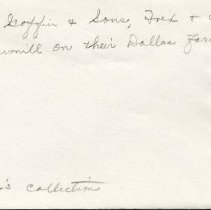 Goffin & Sons, Fred &
sawmill on their Dallas Far
's collections